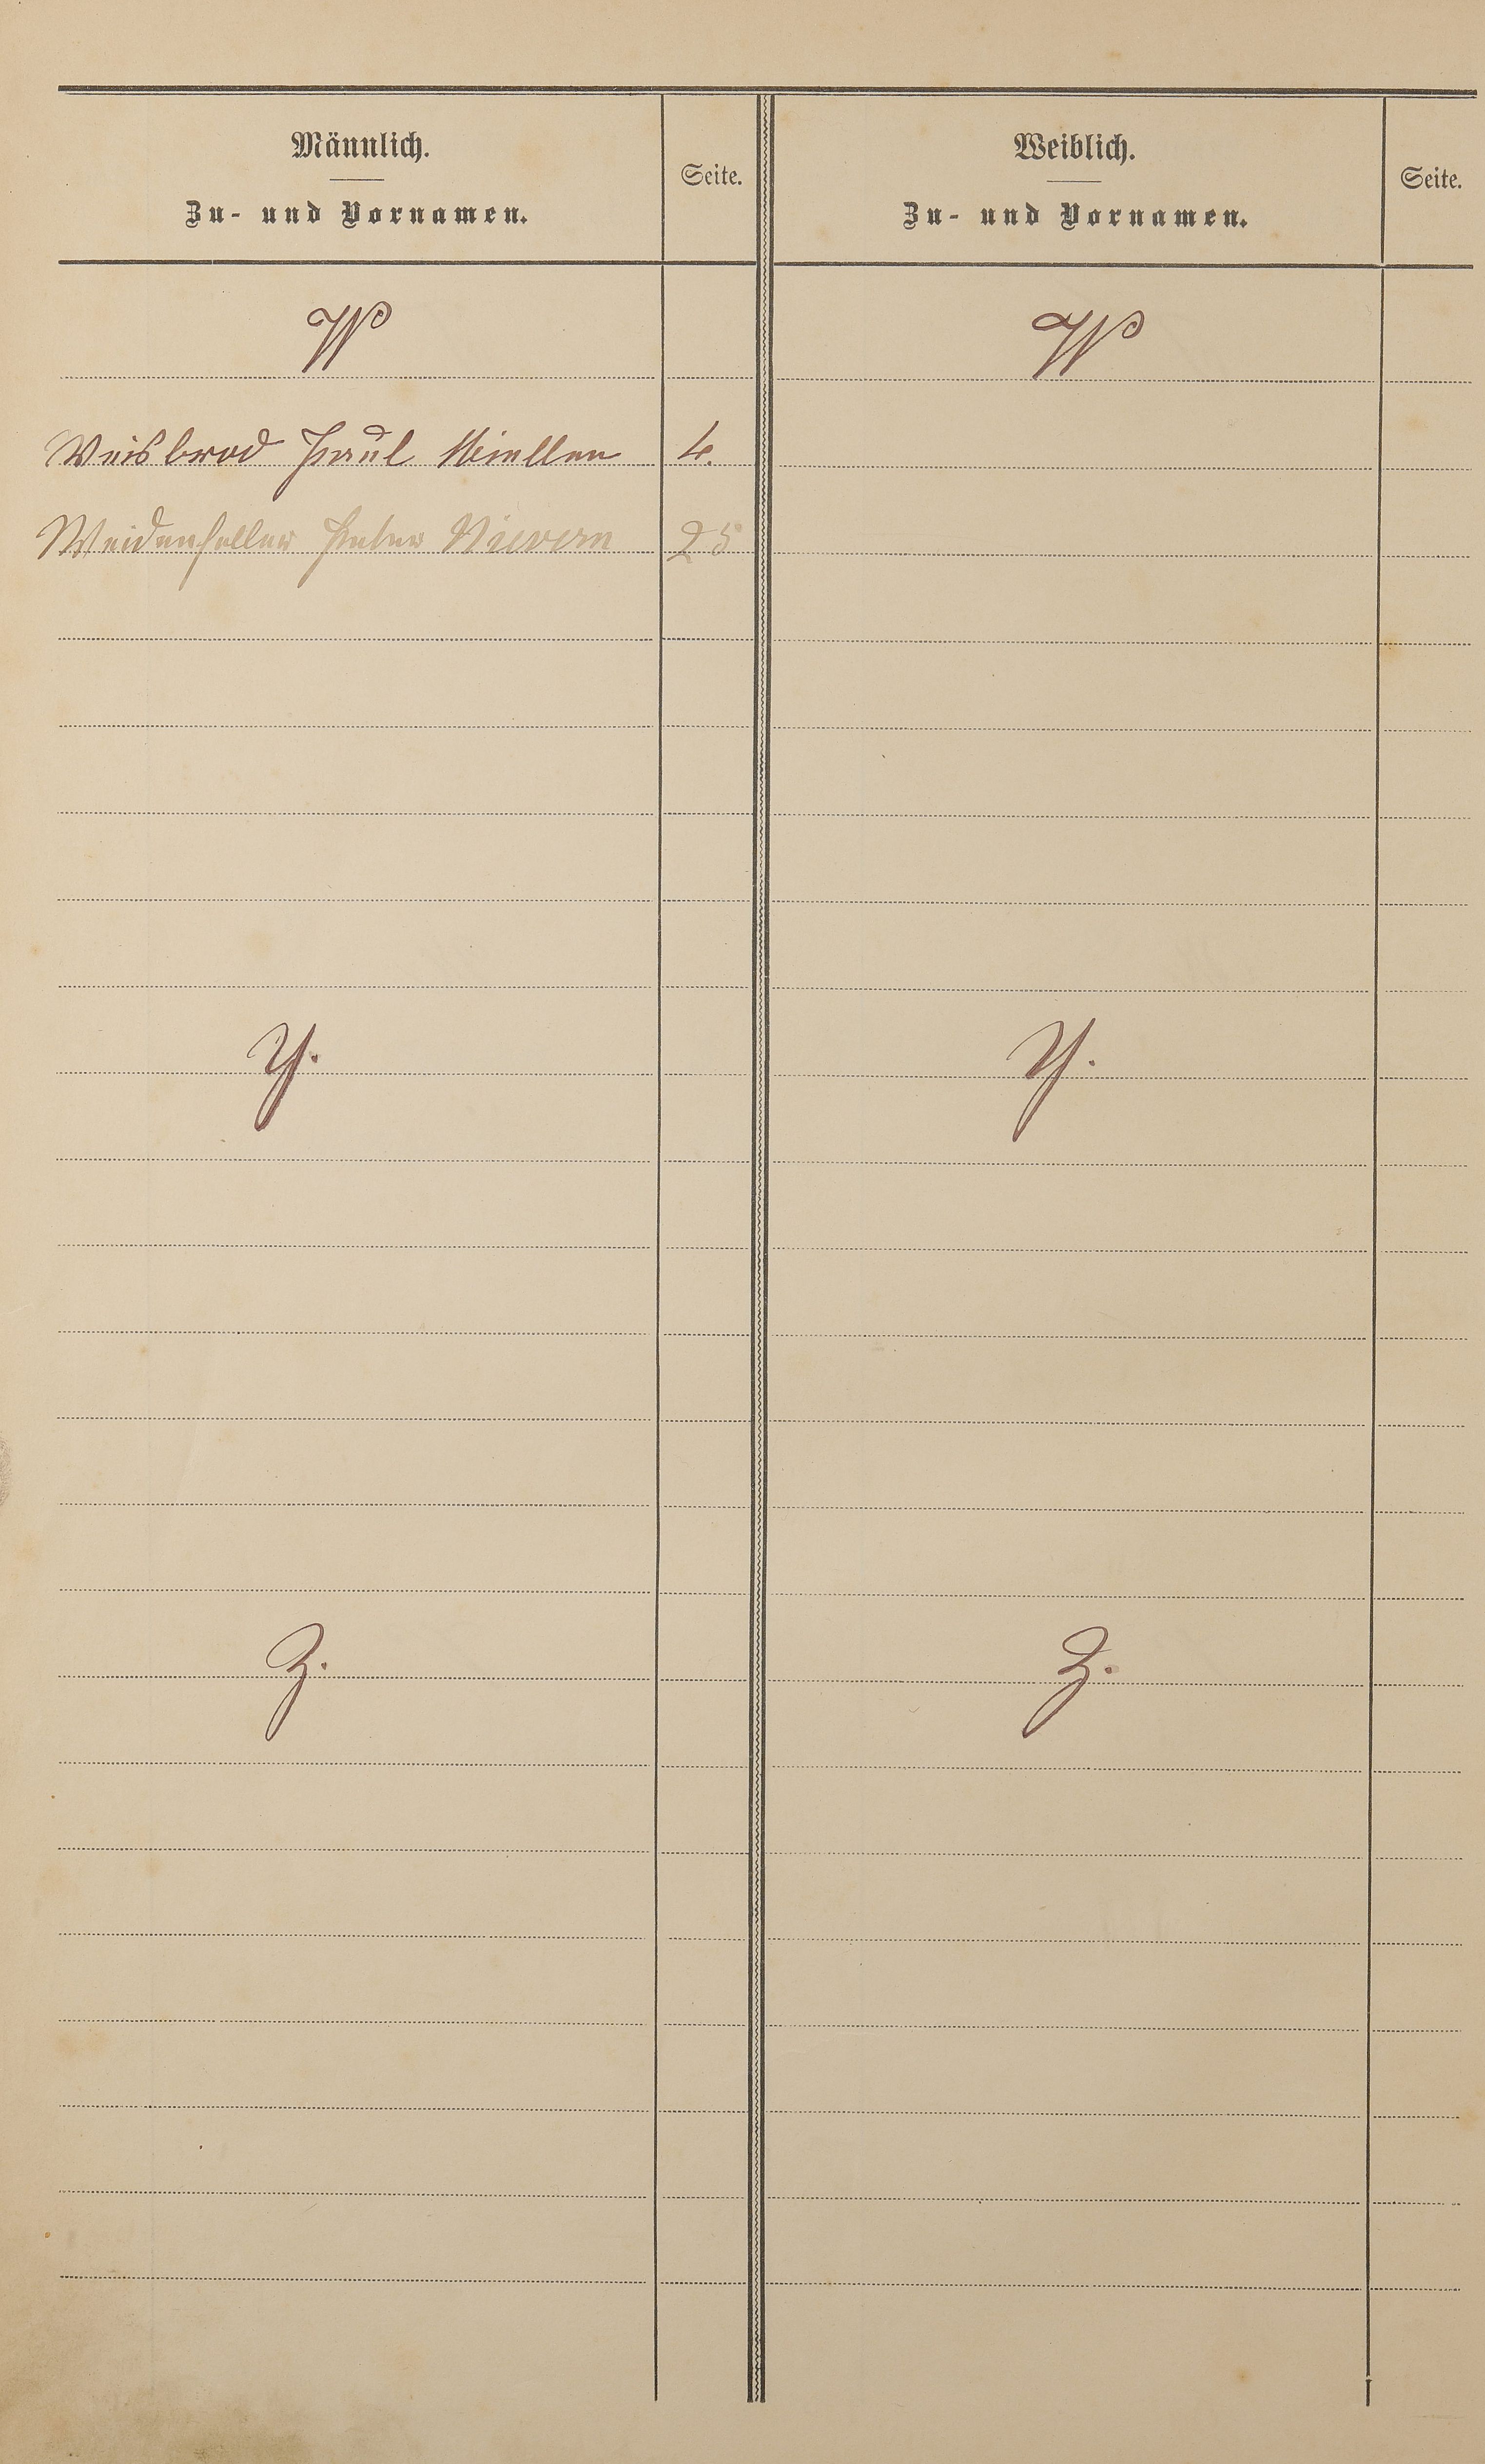 Männlich.
Zu- und Vornamen.
Seite.
Weiblich.
Zu- und Vornamen.
Seite.
W
W
Weisbrod Paul Miellen
4.
Weidenfeller Peter Nievern
25
Y.
Y.
Z.
Z.